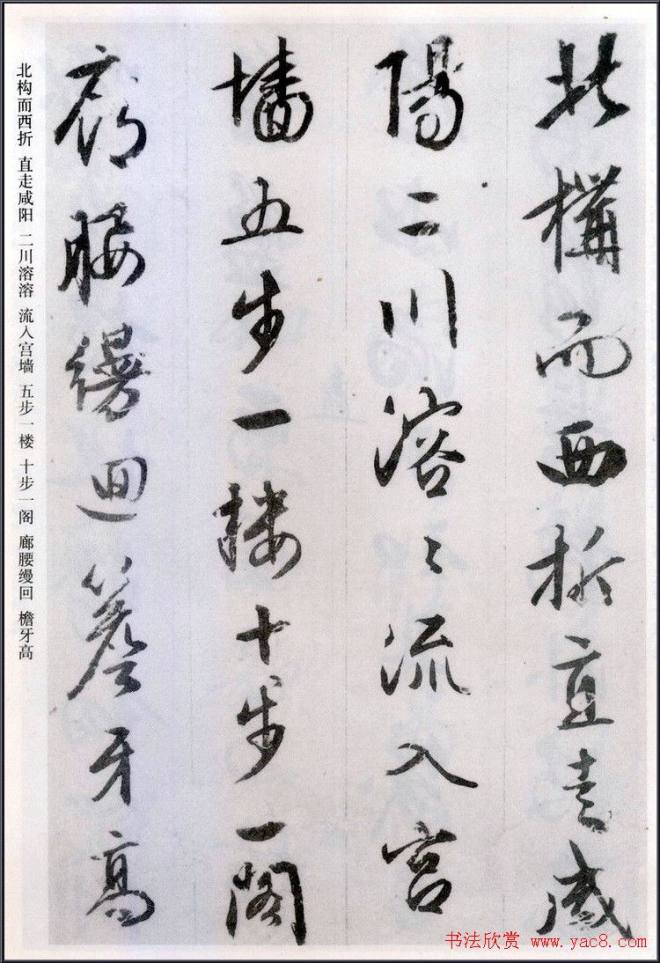 北構而西折直走咸
陽二川溶〻流入宫
墻五步一樓十步一閣
廊腰縵迴簷牙高
北构而西折 直走咸阳 二川溶溶 流入宫墙 五步一楼 十步一阁 廊腰缦回 檐牙高
书法欣赏 www.yac8.com